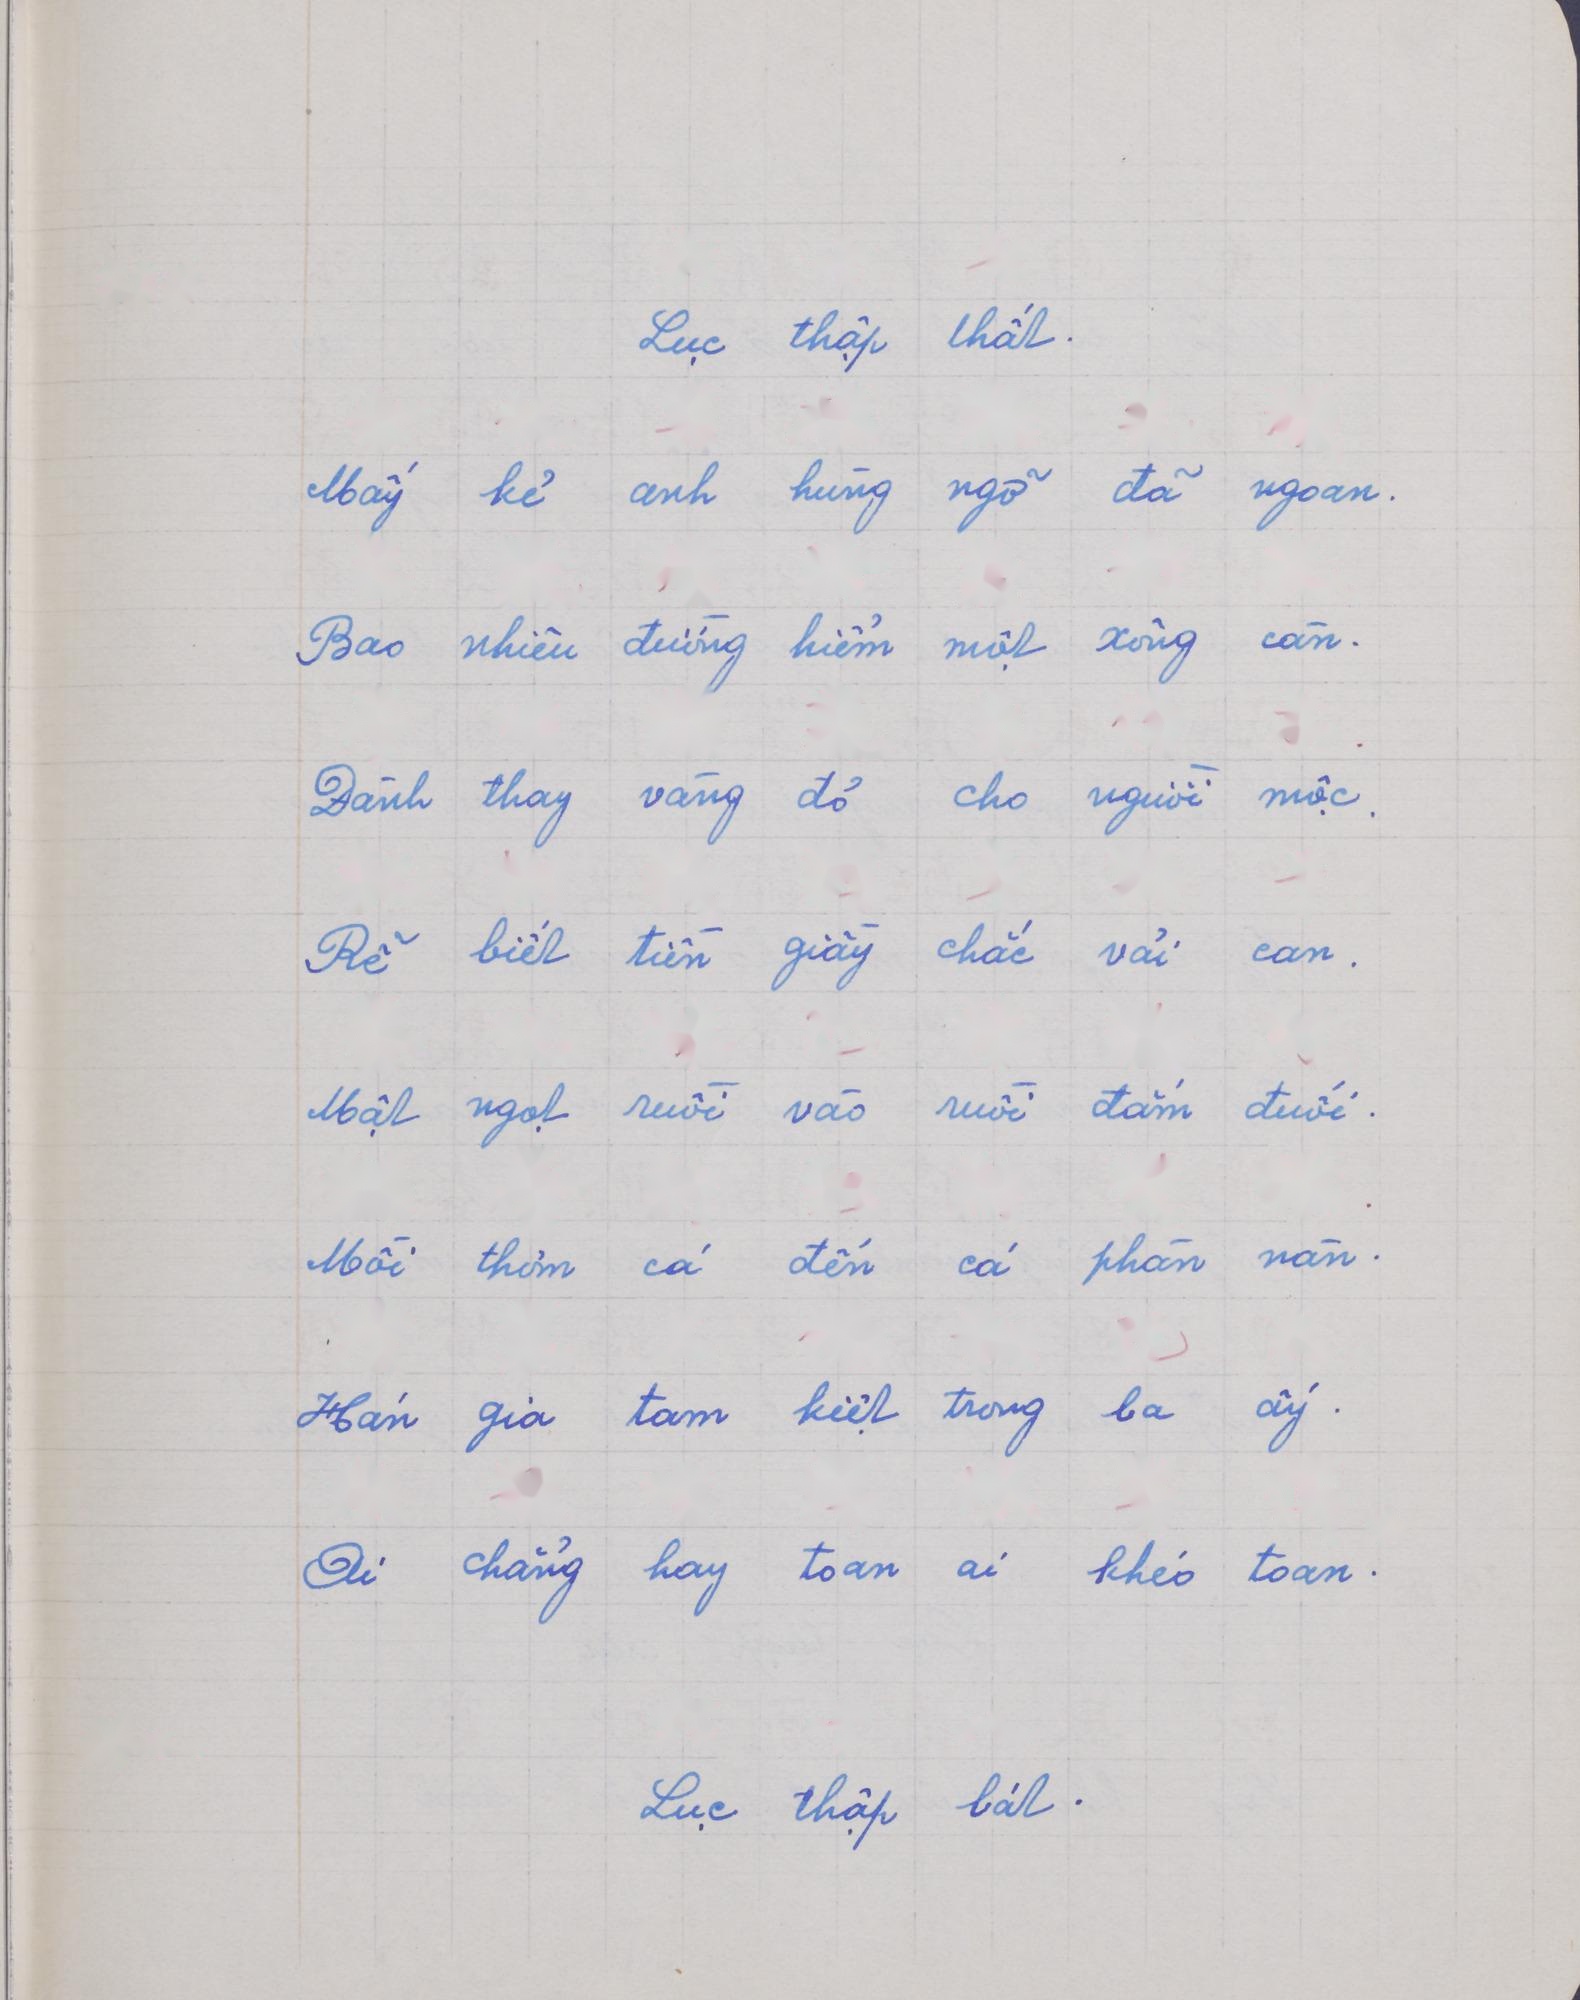 Lục thập thất.
Mấy kẻ anh hùng ngỡ đã ngoan.
Bao nhiêu đường hiểm một xông càn.
Đành thay vàng đỏ cho người mộc.
Rẽ biết tiền giầy chắc vải can.
Mật ngọt ruồi vào ruồi đắm đuối.
Mồi thơm cá đến cá phàn nàn.
Hán gia tam kiệt trong ba ấy.
Ai chẳng hay toan ai khéo toan.
Lục thập bát.